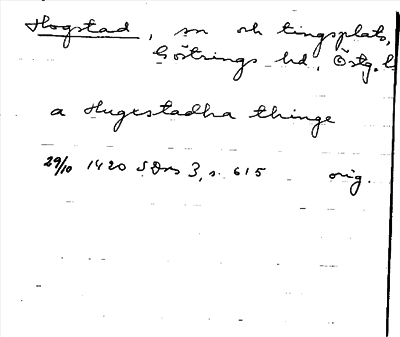 Hogstad, sn och tingsplats,
Göstrings hd, Östg. l
a Hugestadha thinge
29/10 1420 SDns 3, s. 615 orig.